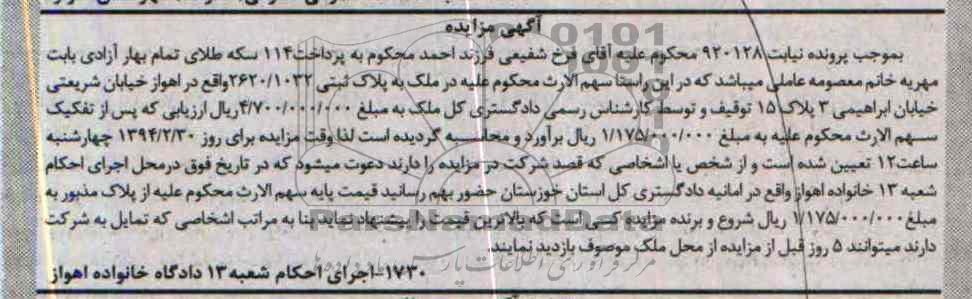 آگهی مزایده
بموجب پرونده نیابت ۹۲۰۱۲۸ محکوم علیه آقای فرخ شفیعی فرزند احمد محکوم به پرداخت۱۱۴ سکه طلای تمام بهار آزادی بابت
مهریه خانم معصومه عاملی میباشد که در این راستا سهم الارث محکوم علیه در ملک به پلاک ثبتی ۲۶۲۰/۱۰۳۲واقع در اهواز خیابان شریعتی
خیابان ابراهیمی ۳ پلاک ۱۵ توقیف و توسط کارشناس رسمی دادگستری کل ملک به مبلغ ۴/۷۰۰/۰۰۰/۰۰۰ریال ارزیابی که پس از تفکیک
سهم الارث محکوم علیه به مبلغ ۱/۱۷۵/۰۰۰/۰۰۰ ریال برآورد و محاسبه گردیده است لذا وقت مزایده برای روز ۱۳۹۴/۲/۳۰ چهارشنبه
ساعت۱۲ تعیین شده است و از شخص یا اشخاصی که قصد شرکت در مزایده را دارند دعوت میشود که در تاریخ فوق درمحل اجرای احکام
شعبه ۱۳ خانواده اهواز واقع در امانیه دادگستری کل استان خوزستان حضور بهم رسانید قیمت پایه سهم الارث محکوم علیه از پلاک مذبور به
مبلغ ۱/۱۷۵/۰۰۰/۰۰۰ ریال شروع و برنده مزایده کسی است که بالاترین قیمت را پیشنهاد نماید بنا به مراتب اشخاصی که تمایل به شرکت
دارند میتوانند ۵ روز قبل از مزایده از محل ملک موصوف بازدید نمایند.
۱۷۳۰-اجرای احکام شعبه۱۳ دادگاه خانواده اهواز